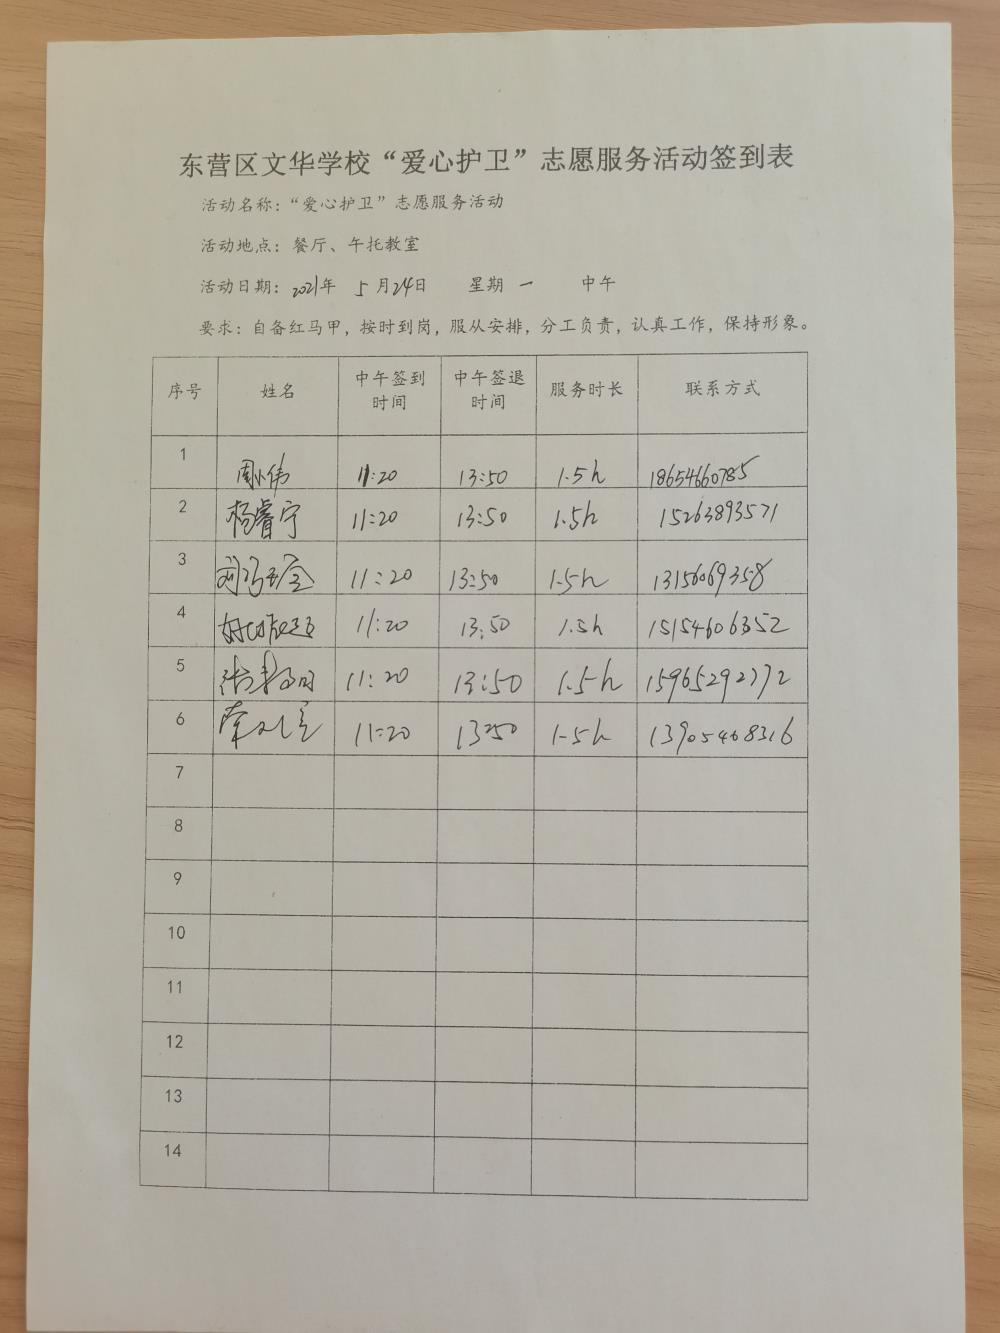 东营区文华学校“爱心护卫”志愿服务活动签到表
活动名称：“爱心护卫”志愿服务活动
活动地点：餐厅、午托教室
活动日期：2021年 5月24日 星期一 中午
要求：自备红马甲，按时到岗，服从安排，分工负责，认真工作，保持形象。
序号 姓名 中午签到时间 中午签退时间 服务时长 联系方式
1 11:20 13:50 1.5h 18654660785
2 杨睿宁 11:20 13:50 1.5h 15263893571
3 11:20 13:50 1.5h 13156069358
4 11:20 13:50 1.5h 15154606352
5 11:20 13:50 1.5h 15965292772
6 11:20 1350 1.5h 13905468316
7
8
9
10
11
12
13
14